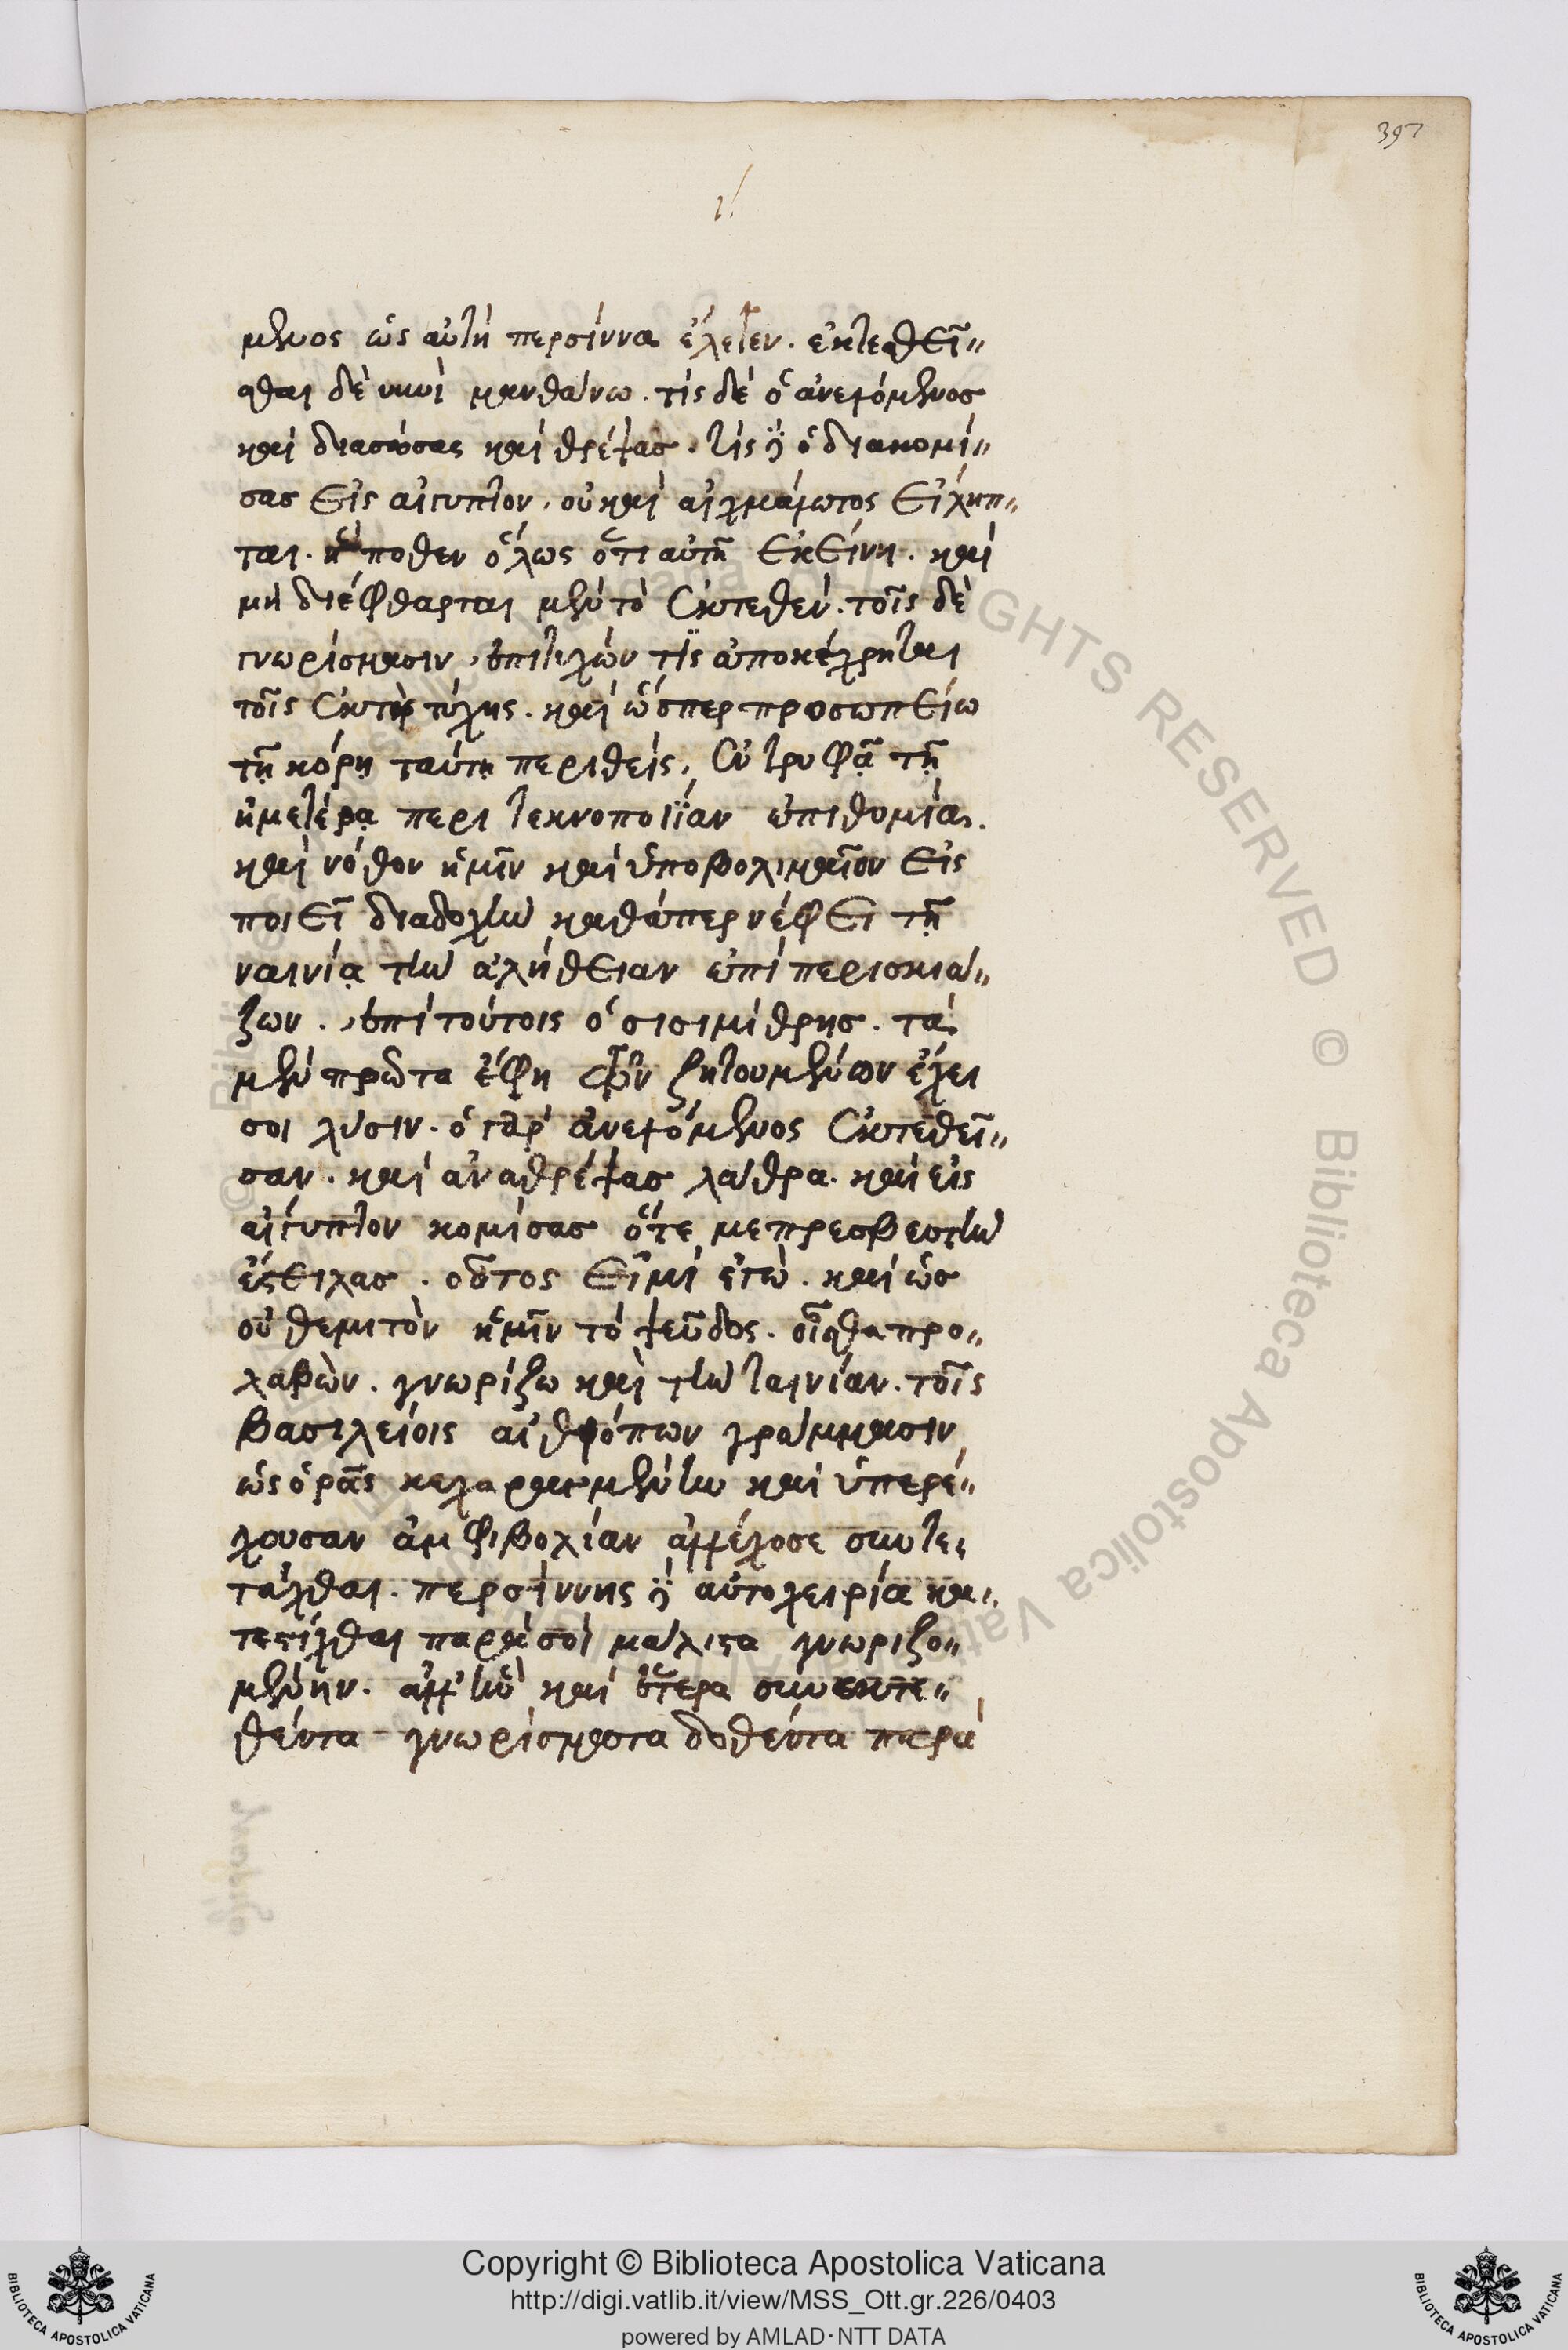 397
ι΄
μενος ὡς αὐτὴ περσίννα ἔλεγεν. ἐκτεθεῖ〃
σθαι δὲ νυνὶ μανθάνω. τίς δὲ ὁ ἀνελόμενος
καὶ διασώσας καὶ θρέψας. τίς δὲ ὁ διακομί〃
σας εἰς αἴγυπτον. οὐ καὶ αἰχμάλωτος εἴληπ〃
ται. ἢ πόθεν ὅλως ὅτι αὐτὴ ἐκείνη. καὶ
μὴ διέφθαρται μὲν τὸ ἐκτεθέν. τοῖς δὲ
γνωρίσμασιν, ἐπιτυχών τις ἀποκέχρηται
τοῖς ἐκ τῆς τύχης. καὶ ὥσπερ προσωπεῖω
τῇ κόρῃ ταύτῃ περιθείς, ἐντρυφᾷ τῇ
ἡμετέρᾳ περι τεκνοποιΐαν ἐπιθυμίᾳ.
καὶ νόθον ἡμῖν καὶ ὑποβολιμαῖον εἰς
ποιεῖ διαδοχὴν καθάπερ νέφει τῇ
ναινίᾳ τὴν ἀλήθειαν ἐπὶ περισκιά〃
ζων. ἐπὶ τούτοις ὁ σισιμίθρης. τὰ
μὲν πρῶτα ἔφη τῶν ζητουμένων ἔχει
σοι λύσιν. ὁ γὰρ ἀνελόμενος ἐκτεθεῖ〃
σαν. καὶ ἀναθρέψας λάθρα. καὶ εἰς
αἴγυπτον κομίσας ὅτε με πρεσβευτὴν
ἔστειλας. οὗτος εἰμὶ ἐγὼ. καὶ ὡς
οὐ θεμιτὸν ἡμῖν τὸ ψεῦδος. οἶσθα προ〃
λαβὼν. γνωρίζω καὶ τὴν ταινίαν. τοῖς
βασιλείοις αἰθιόπων γράμμασιν
ὡς ὁρᾷς κεχαραγμένην καὶ ὑπερέ〃
χουσαν ἀμφιβολίαν ἀλλέχοσε συντε〃
τάχθαι. περσίννης δὲ αὐτοχειρία κα〃
τεστίχθαι παρὰ σοὶ μάλιστα γνωριζο〃
μένην. ἀλλ' ἦν καὶ ἕτερα συνεκτε〃
θέντα γνωρίσματα δοθέντα παρὰ
Copyright © Biblioteca Apostolica Vaticana
http://digi.vatlib.it/view/MSS_Ott.gr.226/0403
powered by AMLAD·NTT DATA